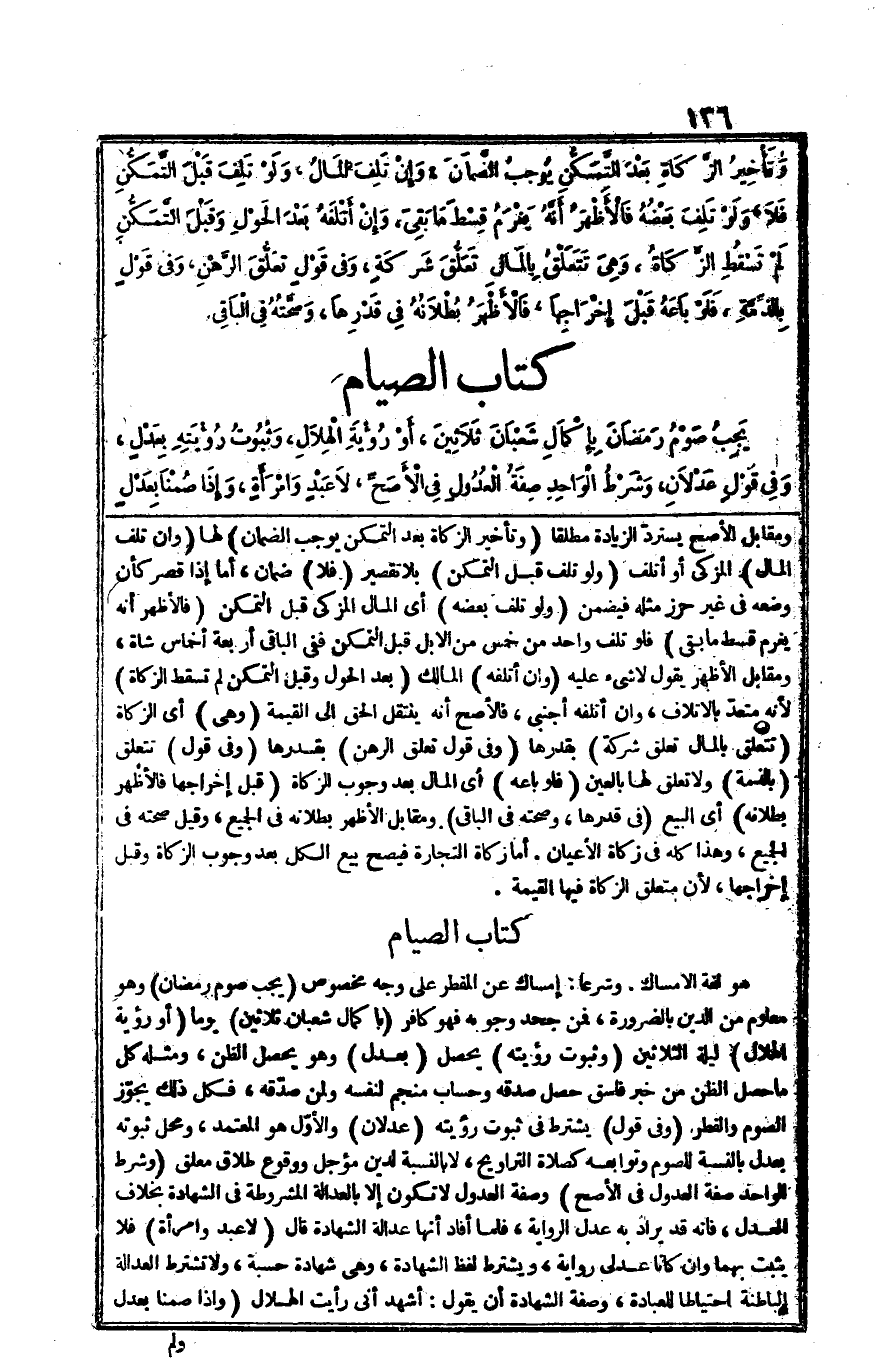 ١٣٦
وَتَأْخِيرُ الزَّكَاةِ بَعْدَ التَّمَكُّنِ يُوجِبُ الضَّمَانَ ، وَإِنْ تَلِفَ المَالُ ، وَلَوْ تَلِفَ قَبْلَ التَّمَكُّنِ
فَلَا ، وَلَوْ تَلِفَ بَعْضُهُ فَالْأَظْهَرُ أَنَّهُ يَغْرَمُ قِسْطَ مَا بَقِيَ، وَإِنْ أَتْلَفَهُ بَعْدَ الحَوْلِ وَقَبْلَ التَّمَكُّنِ
لَمْ تَسْقُطِ الزَّكَاةُ ، وَهِيَ تَتَعَلَّقُ بِالمَالِ تَعَلُّقَ شَرِكَةٍ ، وَفى قَوْلٍ تَعَلُّقَ الرَّهْنِ ، وَفى قَوْلٍ
بِالذِّمَّةِ ، فَلَوْ بَاعَهُ قَبْلَ إِخْرَاجِهَا ، فَالْأَظْهَرُ بُطْلَانُهُ فِي قَدْرِهَا ، وَصِحَّتُهُ فِي الْبَاقِي .
كتاب الصيام
يَجِبُ صَوْمُ رَمَضَانَ بِإِكْمَالِ شَعْبَانَ ثَلَاثِينَ ، أَوْ رُؤْيَةِ الْهِلَالِ، وَثُبُوتُ رُؤْيَتِهِ بِعَدْلٍ ،
وَفِي قَوْلٍ عَدْلَانِ، وَشَرْطُ الْوَاحِدِ صِفَةُ الْعُدُولِ فِي الْأَصَحِّ ، لَا عَبْدٍ وَامْرَأَةٍ ، وَإِذَا صُمْنَا بِعَدْلٍ
ومقابل الأصح يستردّ الزيادة مطلقا (وتأخير الزكاة بعد التمكن يوجب الضمان) لها (وان تلف
المال) المزكى أو أتلف (ولو تلف قبل التمكن) بلا تقصير (فلا) ضمان ، أما إذا قصر كأن
وضعه فى غير حرز مثله فيضمن (ولو تلف بعضه) أى المال المزكى قبل التمكن (فالأظهر أنه
يغرم قسط ما بقى) فلو تلف واحد من خمس من الابل قبل التمكن ففى الباقى أربعة أخماس شاة ،
ومقابل الأظهر يقول لاشىء عليه (وان أتلفه) المالك (بعد الحول وقبل التمكن لم تسقط الزكاة)
لأنه متعدّ بالاتلاف ، وان أتلفه أجنبى ، فالأصح أنه ينتقل الحق الى القيمة (وهى) أى الزكاة
(تتعلق بالمال تعلق شركة) بقدرها (وفى قول تعلق الرهن) بقدرها (وفى قول) تتعلق
(بالذمة) ولا تعلق لها بالعين (فلو باعه) أى المال بعد وجوب الزكاة (قبل إخراجها فالأظهر
بطلانه) أى البيع (فى قدرها ، وصحته فى الباقى) ومقابل الأظهر بطلانه فى الجميع ، وقيل صحته فى
الجميع ، وهذا كله فى زكاة الأعيان . أما زكاة التجارة فيصح بيع الكل بعد وجوب الزكاة وقبل
إخراجها ، لأن متعلق الزكاة فيها القيمة .
كتاب الصيام
هو لغة الامساك . وشرعا : إمساك عن المفطر على وجه مخصوص (يجب صوم رمضان) وهو
معلوم من الدين بالضرورة ، فمن جحد وجوبه فهو كافر (باكمال شعبان ثلاثين) يوما (أو رؤية
الهلال) ليلة الثلاثين (وثبوت رؤيته) يحصل (بعدل) وهو يحصل الظن ، ومثله كل
ماحصل الظن من خبر فاسق حصل صدقه وحساب منجم لنفسه ولمن صدّقه ، فكل ذلك يجوّز
الصوم والفطر. (وفى قول) يشترط فى ثبوت رؤيته (عدلان) والأوّل هو المعتمد ، ومحل ثبوته
بعدل بالنسبة للصوم وتوابعه كصلاة التراويح ، لا بالنسبة لدين مؤجل ووقوع طلاق معلق (وشرط
الواحد صفة العدول فى الأصح) وصفة العدول لا تكون إلا بالعدالة المشروطة فى الشهادة بخلاف
العدل ، فانه قد يراد به عدل الرواية ، فلما أفاد أنها عدالة الشهادة قال (لا عبد وامرأة) فلا
يثبت بهما وان كانا عدلى رواية ، ويشترط لفظ الشهادة ، وهى شهادة حسبة ، ولا تشترط العدالة
الباطنة احتياطا للعبادة ، وصفة الشهادة أن يقول : أشهد أنى رأيت الهلال (واذا صمنا بعدل
ولم